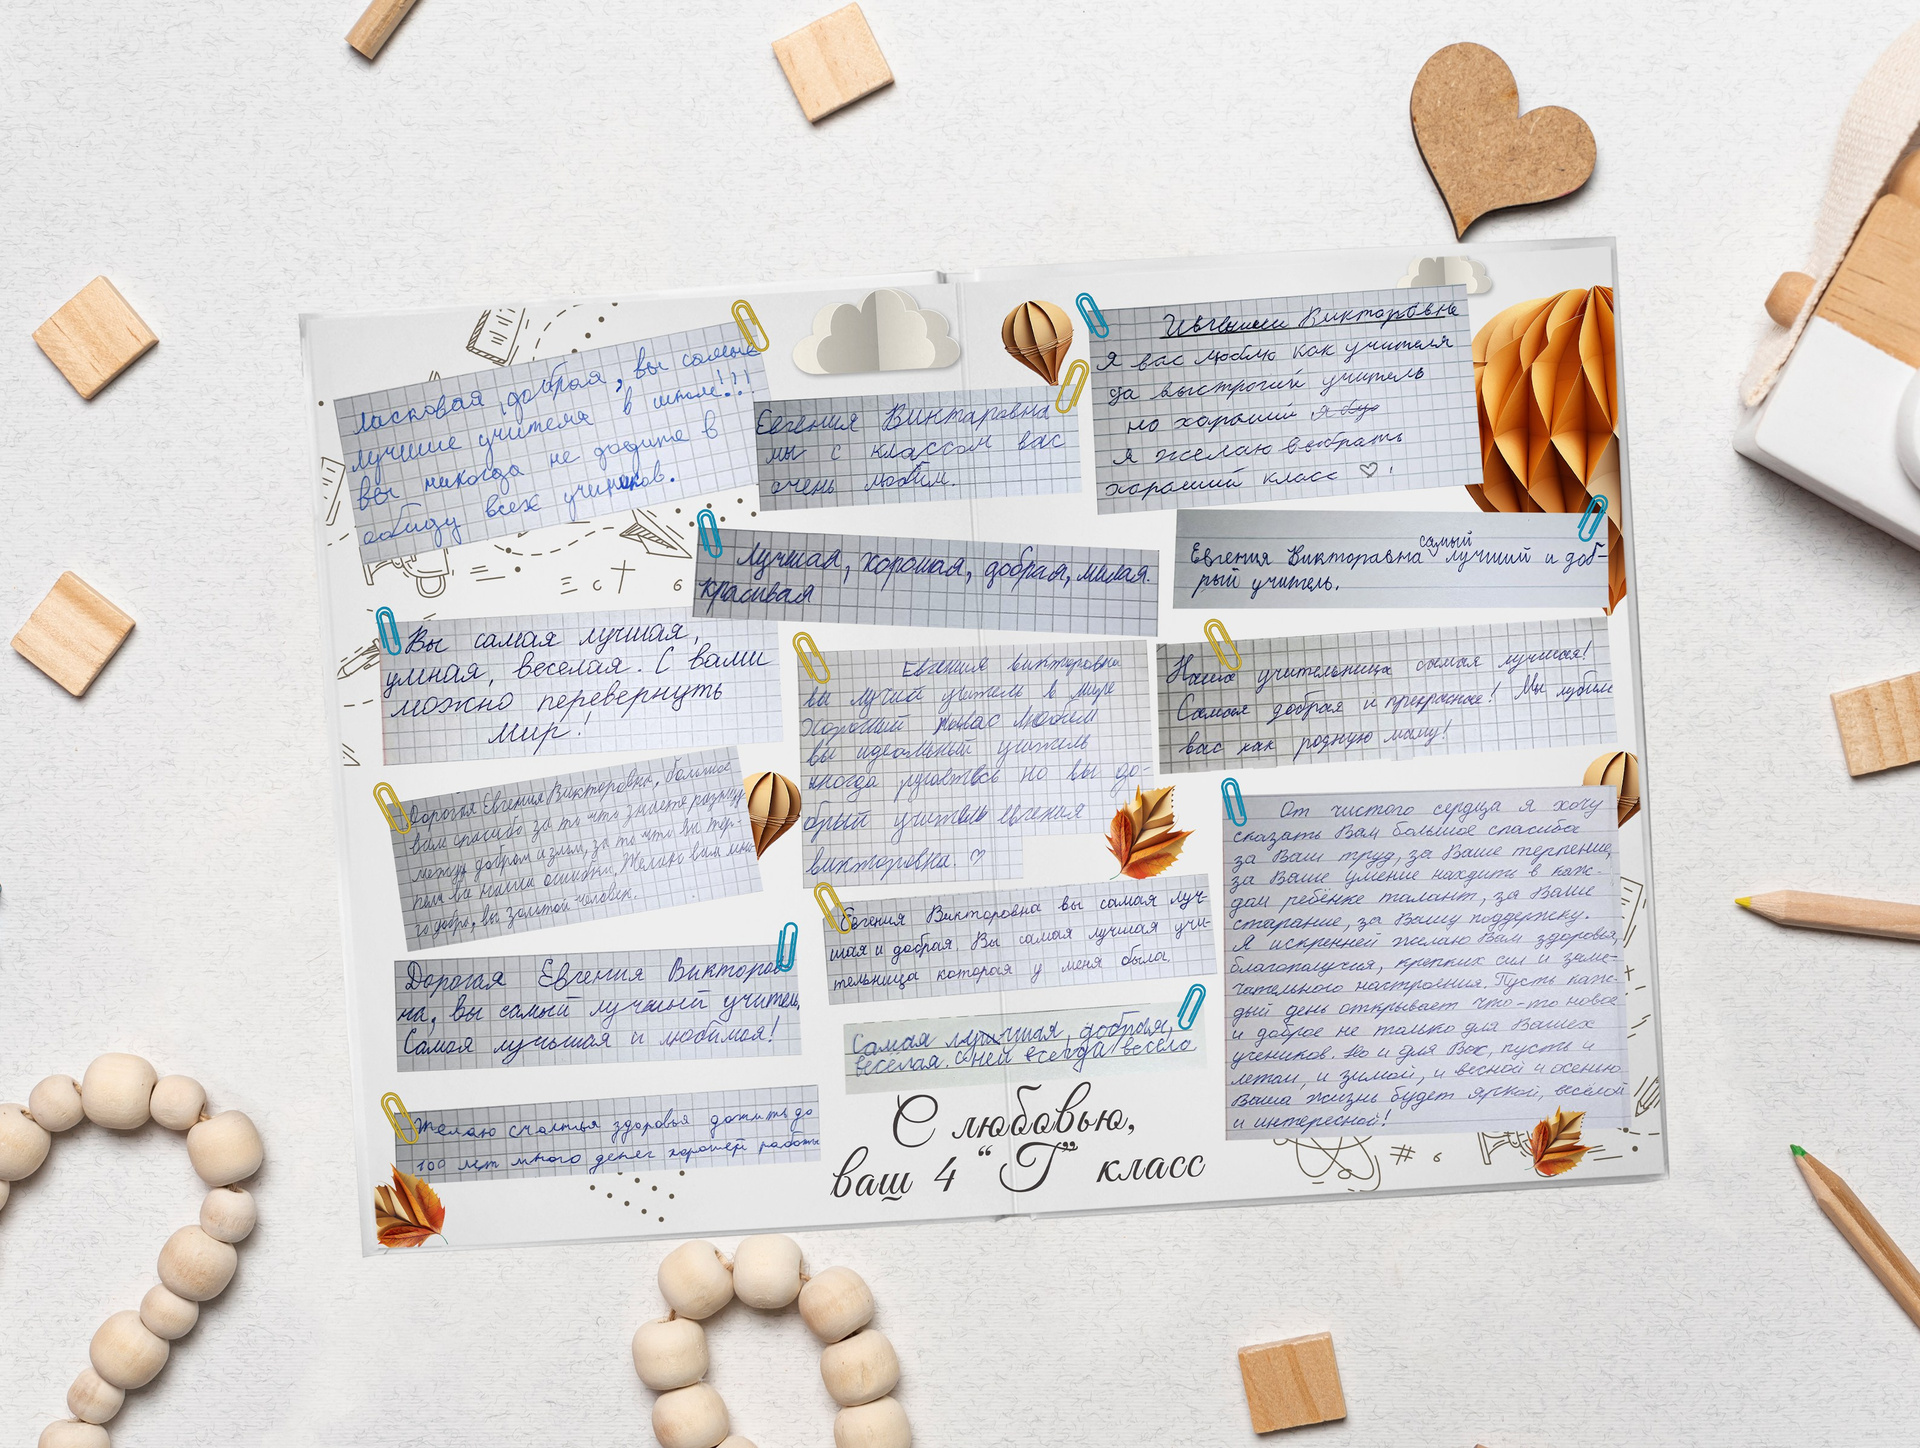 Ласковая, добрая, вы самые
лучшие учителя в школе!!!
вы никогда не дадите в
обиду всех учиников.
Евгения Виктаравна
мы с классом вас
очень любим.
Викторовне
Я вас люблю как учителя
да выстрогий учитель
но хороший я
я желаю выбрать
хороший класс ♡!
Лучшая, хорошая, добрая, милая.
красивая
Евгения Викторавна самый лучший и доб-
рый учитель.
Вы самая лучшая,
умная, веселая. С вами
можно перевернуть
мир!
Евгения викторовна
вы лучий учитель в мире
Хороший мывас любим
вы идеальный учитель
иногда но вы до-
брый учитель евгения
викторовна. ♡
Наша учительница самая лучшая!
Самая добрая и прекрасная! Мы любим
вас как родную маму!
Дорогая Евгения Викторовна, большое
вам спасибо за то что знаете разницу
между добром и злом, за то что вы тер-
пели наши ошибки. Желаю вам мно-
го добра, вы золотой человек.
Евгения Викторовна вы самая луч-
шая и добрая. Вы самая лучшая учи-
тельница которая у меня была.
Дорогая Евгения Викторов
на, вы самый лучший учитель,
Самая лучьшая и любимая!
Самая лучшая, добрая,
весёлая. С ней всегда весело
Желаю счастья здоровья дожить до
100 лет много денег хорошей работы
От чистого сердца я хочу
сказать Вам большое спасибо
за Ваш труд, за Ваше терпение,
за Ваше умение находить в каж-
дом ребёнке талант, за Ваше
старание, за Вашу поддержку.
Я искренней желаю Вам здоровья,
благополучия, крепких сил и заме-
чательного настроения. Пусть каж-
дый день открывает что-то новое
и доброе не только для Ваших
учеников. Но и для Вас, пусть и
летом, и зимой, и весной и осенью
Ваша жизнь будет яркой, весёлой
и интересной!
С любовью,
ваш 4 "Г" класс